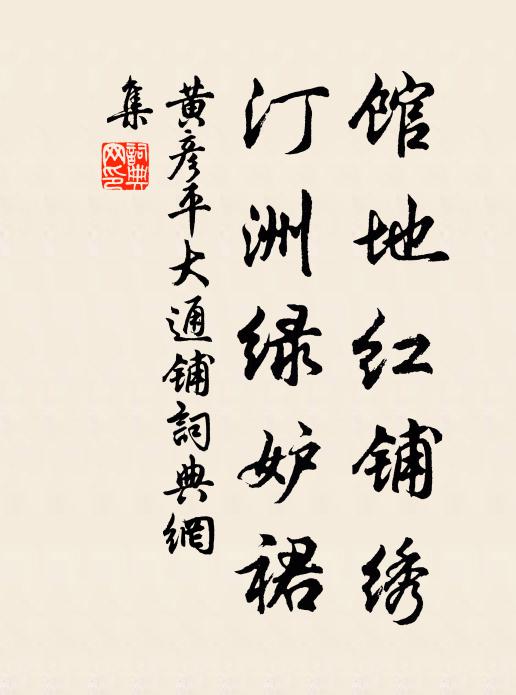 馆地红铺绣
汀洲绿妒裙
黄彦平大通铺詞典網
集
詞典網印